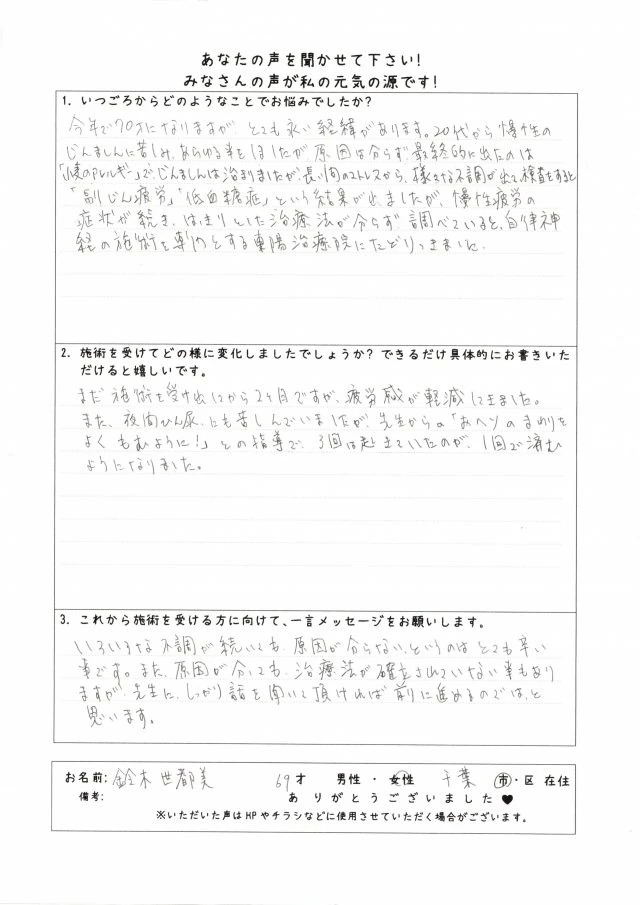 あなたの声を聞かせて下さい!
みなさんの声が私の元気の源です!
1. いつごろからどのようなことでお悩みでしたか?
今年で70才になりますが、とても永い経緯があります。20代から慢性の
じんましんに苦しみ、あらゆる事をしましたが原因は分らず最終的に出たのは
「小麦のアレルギー」で、じんましんは治まりましたが、長い間のストレスから、様々な不調が出て検査をすると
「副じん疲労」「低血糖症」という結果が出ましたが、慢性疲労の
症状が続き、はっきりとした治療法が分らず調べていると、自律神
経の施術を専門とする東陽治療院にたどりつきました。
2. 施術を受けてどの様に変化しましたでしょうか? できるだけ具体的にお書きいた
だけると嬉しいです。
まだ施術を受け出してから2ヶ月ですが、疲労感が軽減してきました。
また、夜間ひん尿にも苦しんでいましたが、先生からの「おヘソのまわりを
よくもむように!」との指導で、3回は起きていたのが、1回で済む
ようになりました。
3. これから施術を受ける方に向けて、一言メッセージをお願いします。
いろいろな不調が続いても、原因が分らない、というのはとても辛い
事です。また、原因が分っても、治療法が確立されていない事もあり
ますが、先生に、しっかり話を聞いて頂ければ前に進めるのでは、と
思います。
お名前: 鈴木 世都美 69才 男性・女性 千葉 市・区 在住
備考: ありがとうございました♥
※いただいた声はHPやチラシなどに使用させていただく場合がございます。